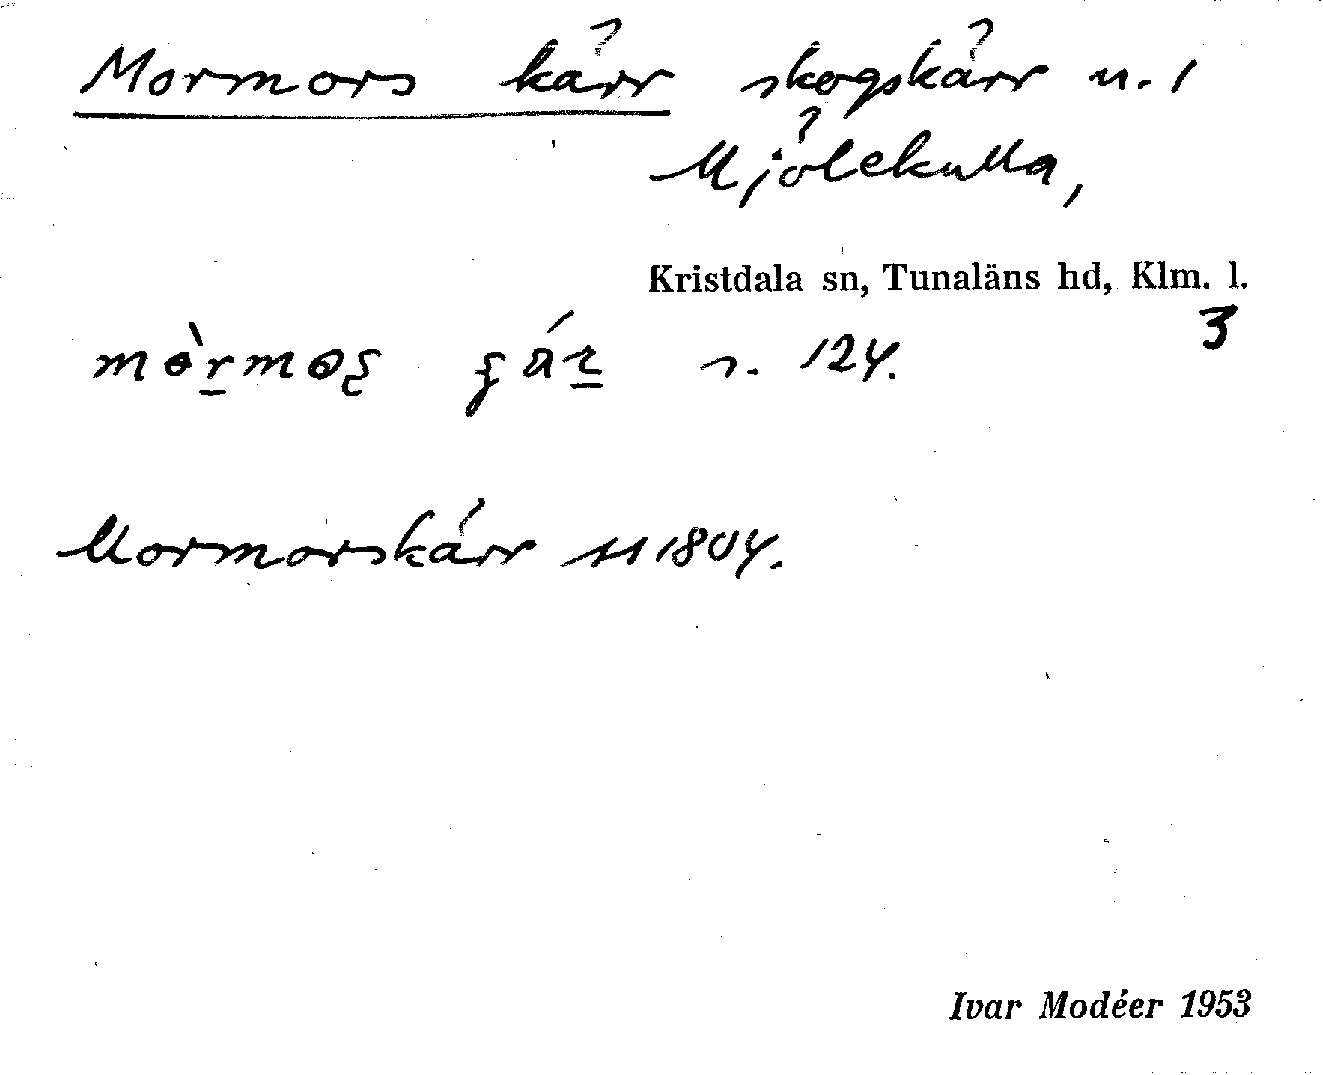 Mormors kärr skogskärr u. /
Mjölekulla,
Kristdala sn, Tunaläns hd, Klm. l.
3
124.
Mormorskärr 1804.
Ivar Modéer 1953